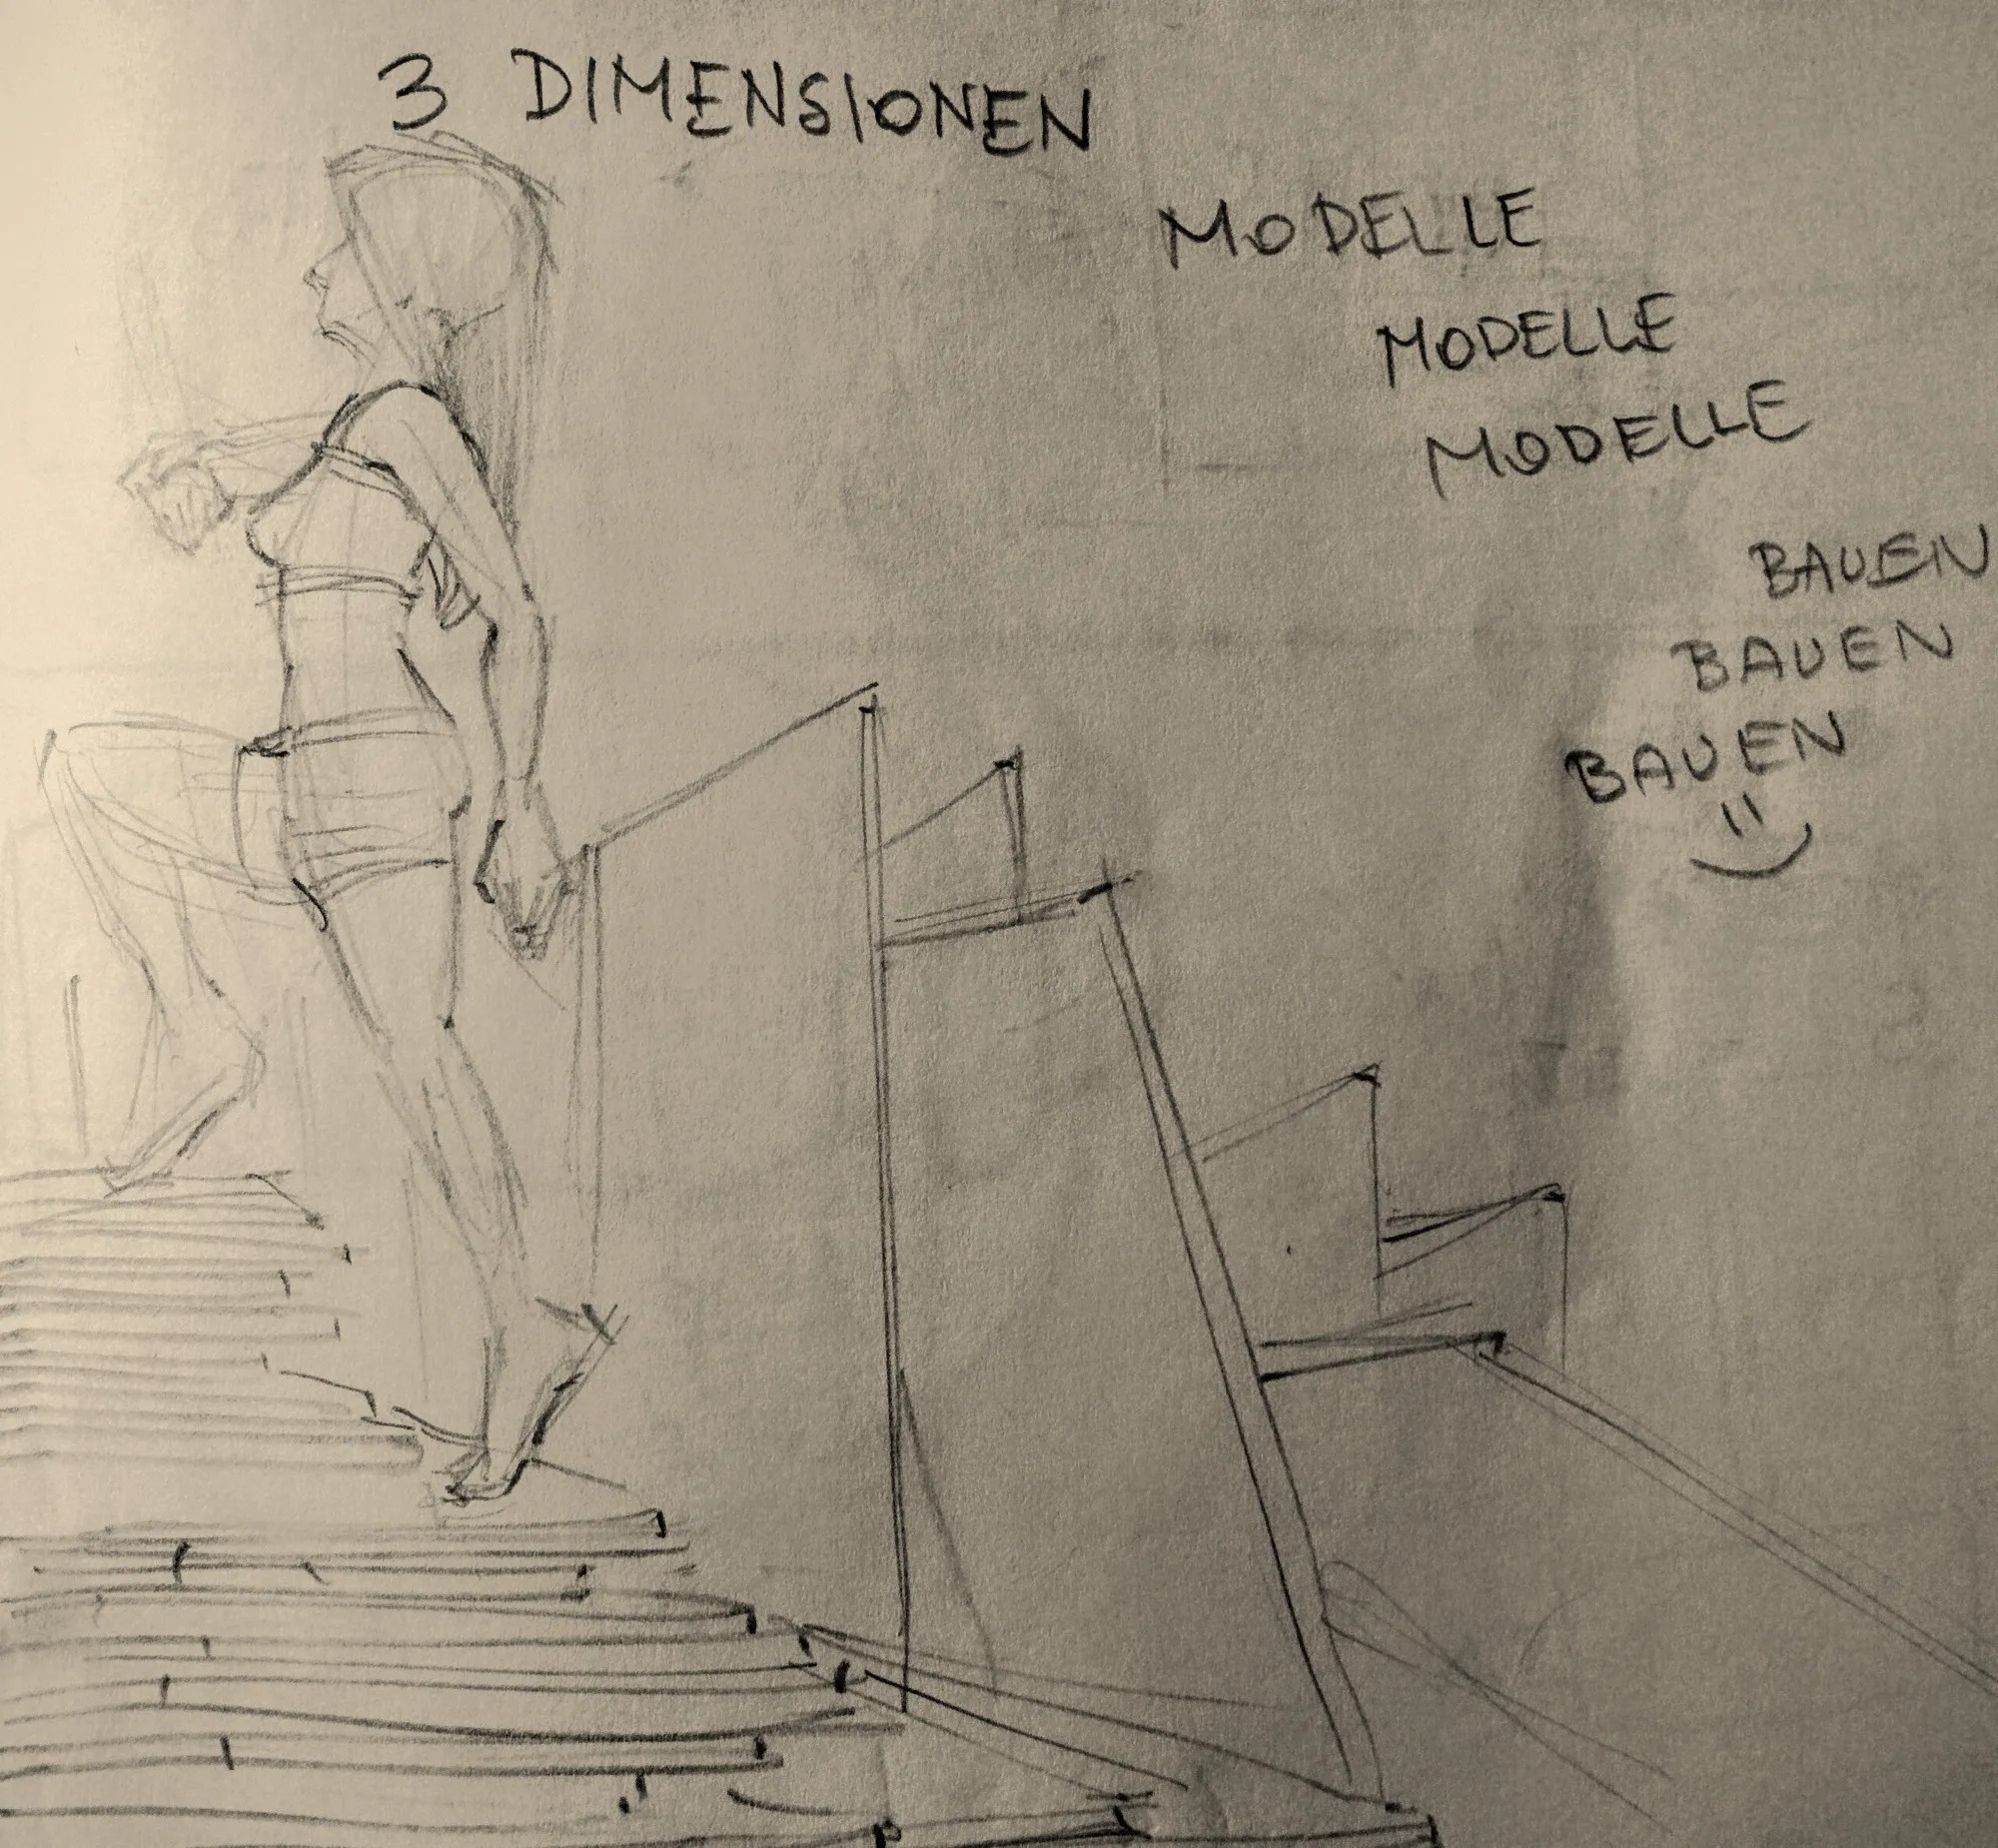 3 DIMENSIONEN
MODELLE
MODELLE
MODELLE
BAUEN
BAUEN
BAUEN